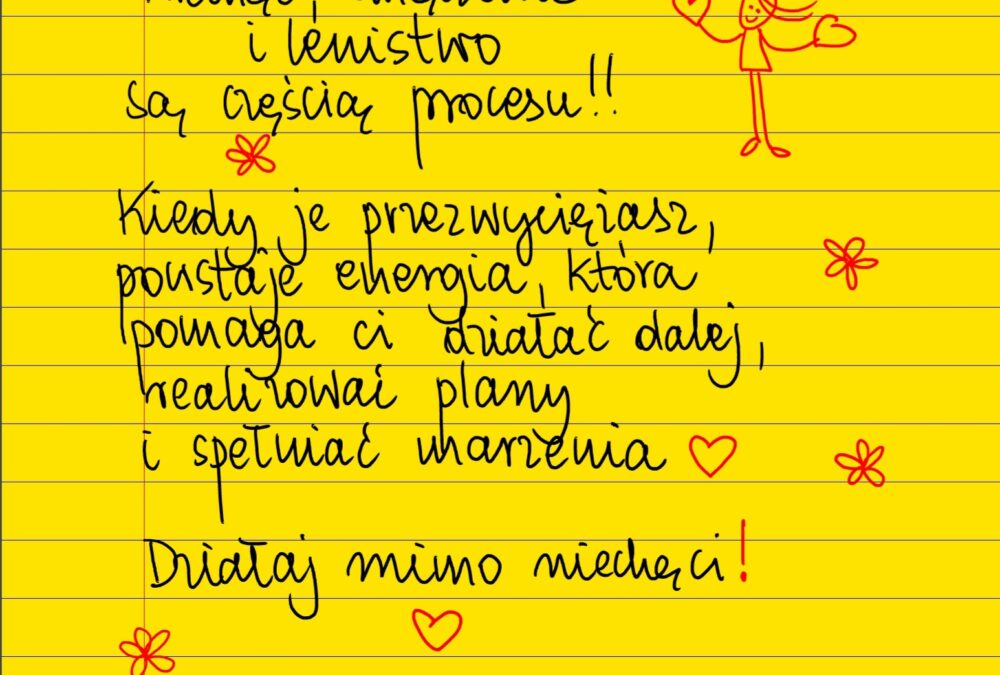 i lenistwo
są częścią procesu!!
Kiedy je przezwyciężasz,
powstaje energia, która
pomaga ci działać dalej,
realizować plany
i spełniać marzenia
Działaj mimo niechęci!